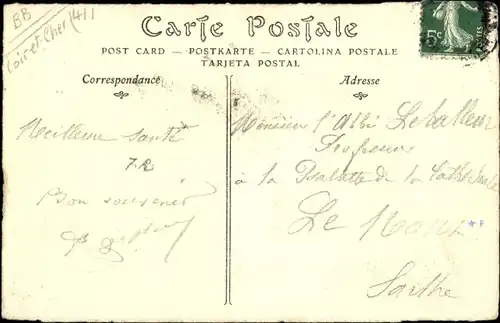 BB
Loir et Cher (41)
Carte Postale
5c
POSTES
POST CARD — POSTKARTE — CARTOLINA POSTALE
TARJETA POSTAL
Correspondance
Adresse
Meilleure santé
Bon souvenir
Monsieur l'Abbé
Professeur
à la Psalette de la Cathédrale
Le Mans
Sarthe